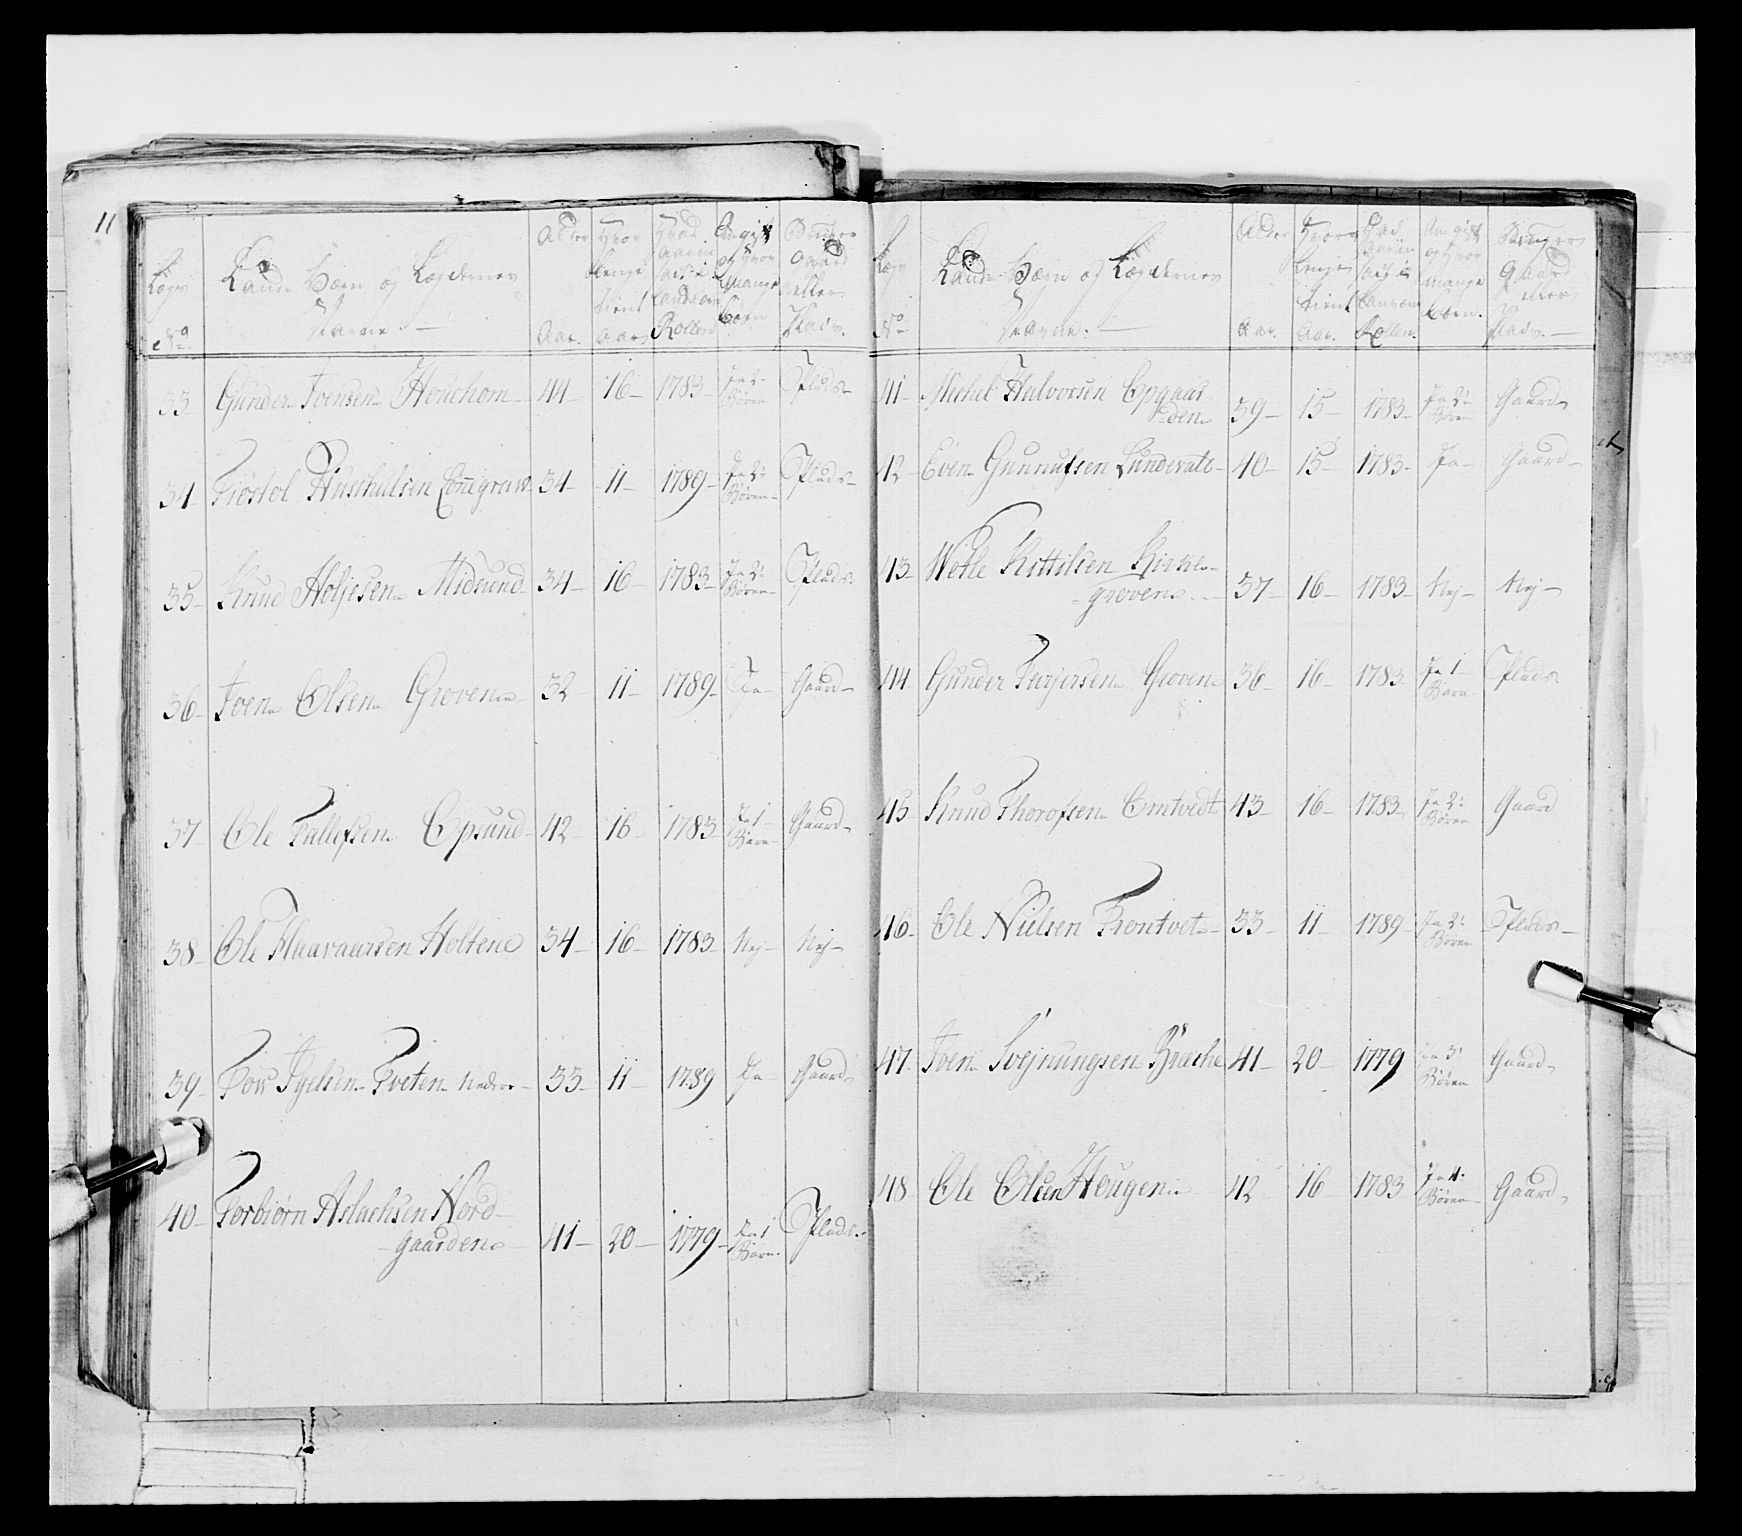 11
Lægs No
Land- Værn og Lægdernes Navne.
Alder Aar.
Hvor længe tient Aar
Hvad Aar ind sadt i Landværn Rollen
Om gift og hvor mange børn
Bruger Gaard eller Plads.
33 Gunder Joensen Houchom 44 16 1783 Ja 2 Børn Plads
34 Tiøstol Austhulsen 34 11 1789 Ja 2 Børen Plads
35 Knud Holjesen Midsund 34 16 1783 Ja 2 Børen Plads
36 Joen Olsen Groven 32 11 1789 Ja Gaard
37 Ole Tallefsen Opsund 42 16 1783 Ja 1 Barn Gaard
38 Ole Haavaarsen Holtene 34 16 1783 Nej Nej
39 Tov Tveten Nedre 33 11 1789 Ja Gaard
40 Torbiørn Aslachsen Nord-
gaarden 41 20 1779 Ja 1 Barn Plads
Lægs No
Land- Værn og Lægdernes Navne.
Alder Aar.
Hvor længe tient Aar.
Hvad Aar ind sadt i Landværn Rollen.
Om gift og hvor mange børn.
Bruger Gaard eller Plads.
41 Michel Halvorsen Opgaar-
den 39 15 1783 Ja 2 Børen Gaard
42 Even Gunnulfsen Lundevalt 40 15 1783 Ja Gaard
43 Wetle Kittilsen Kirke-
groven 37 16 1783 Nej Nej
44 Gunder Terjersen Groven 36 16 1783 Ja 1 Barn Plads
45 Knud Thorofsen Omtvedt 43 16 1783 Ja 2 Børen Gaard
46 Ole Nielsen Tvontvet 33 11 1789 Ja 2 Børen Plads
47 Joen Svejnungsen Bræche 41 20 1779 Ja 3 Børen Gaard
48 Ole Olsen Hougen 42 16 1783 Ja 4 Børen Gaard